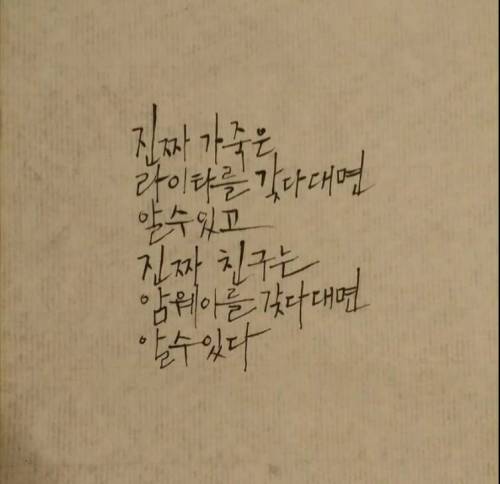 진짜 가죽은
라이타를 갖다대면
알수있고
진짜 친구는
암웨이를 갖다대면
알수있다